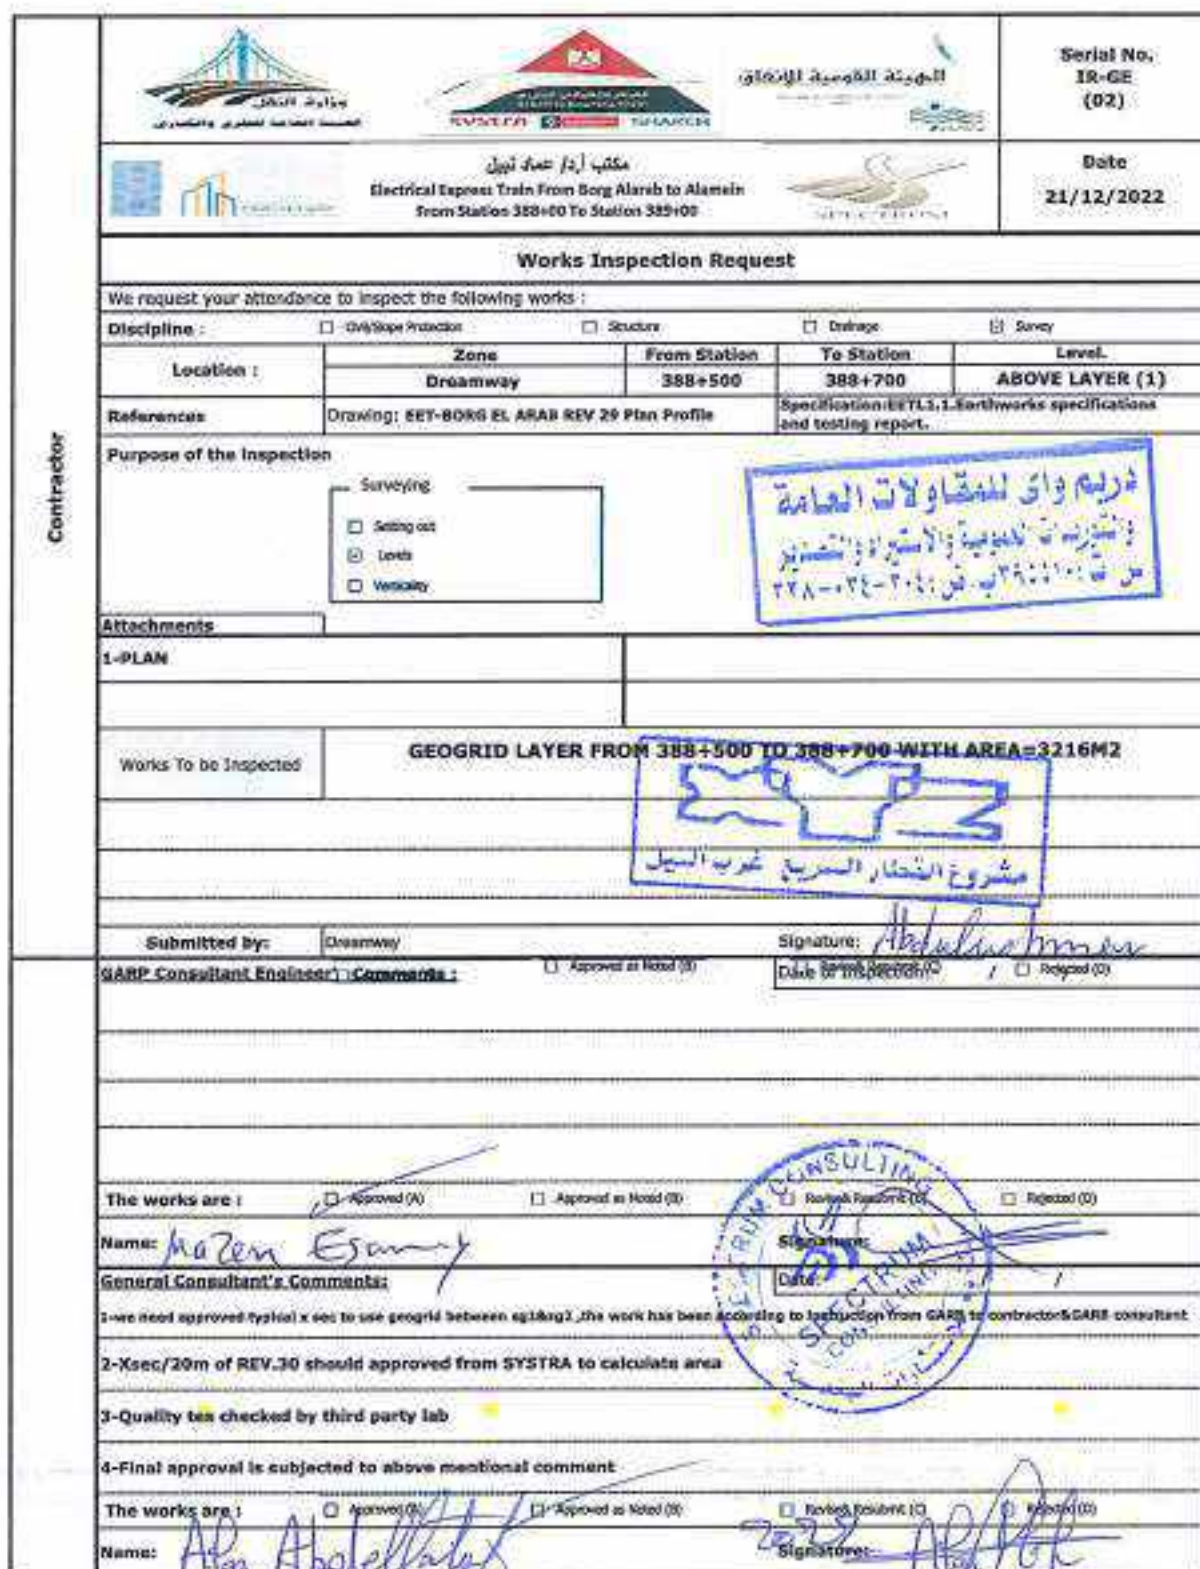 وزارة النقل
SYSTRA
SHAKER
الهيئة القومية للإنفاق
Serial No.
IR-GE
(02)
مكتب أ.د/ عماد نبيل
Electrical Express Train From Borg Alarab to Alamein
From Station 388+00 To Station 389+00
SPECTRUM
Date
21/12/2022
Works Inspection Request
We request your attendance to inspect the following works :
Contractor
Discipline : Civil/Slope Protection Structure Drainage Survey
Location : Zone From Station To Station Level.
Dreamway 388+500 388+700 ABOVE LAYER (1)
References Drawing: EET-BORG EL ARAB REV 29 Plan Profile Specification:EETL1.1.Earthworks specifications and testing report.
Purpose of the Inspection
Surveying
Setting out
Levels
Verticality
دريم واى للمقاولات العامة
Attachments
1-PLAN
Works To be Inspected GEOGRID LAYER FROM 388+500 TO 388+700 WITH AREA=3216M2
مشروع القطار السريع غرب النيل
Submitted by: Dreamway Signature:
GARP Consultant Engineer Comments : Approved as Noted (B) Date of Inspection: Rejected (D)
The works are : Approved (A) Approved as Noted (B) Revise& Resubmit (C) Rejected (D)
Name: Mazen Signature:
General Consultant's Comments: Date:
1-we need approved typical x sec to use geogrid between sg1&sg2 ,the work has been according to instruction from GARB to contractor&GARB consultant
2-Xsec/20m of REV.30 should approved from SYSTRA to calculate area
3-Quality checked by third party lab
4-Final approval is subjected to above mentional comment
SPECTRUM CONSULTING
The works are : Approved (A) Approved as Noted (B) Revise& Resubmit (C) Rejected (D)
Name: Signature: